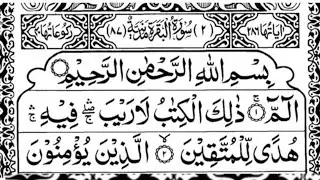 اٰیَاتُهَا ٢٨٦ (٢) سُوْرَةُ الْبَقَرَةِ مَدَنِيَّةٌ (٨٧) رُكُوْعَاتُهَا ٤٠
بِسْمِ اللهِ الرَّحْمٰنِ الرَّحِيْمِ
الٓمّٓ ۚ ١ ذٰلِكَ الْكِتٰبُ لَا رَيْبَ ۛ فِيْهِ ۛ
هُدًى لِّلْمُتَّقِيْنَ ٢ الَّذِيْنَ يُؤْمِنُوْنَ